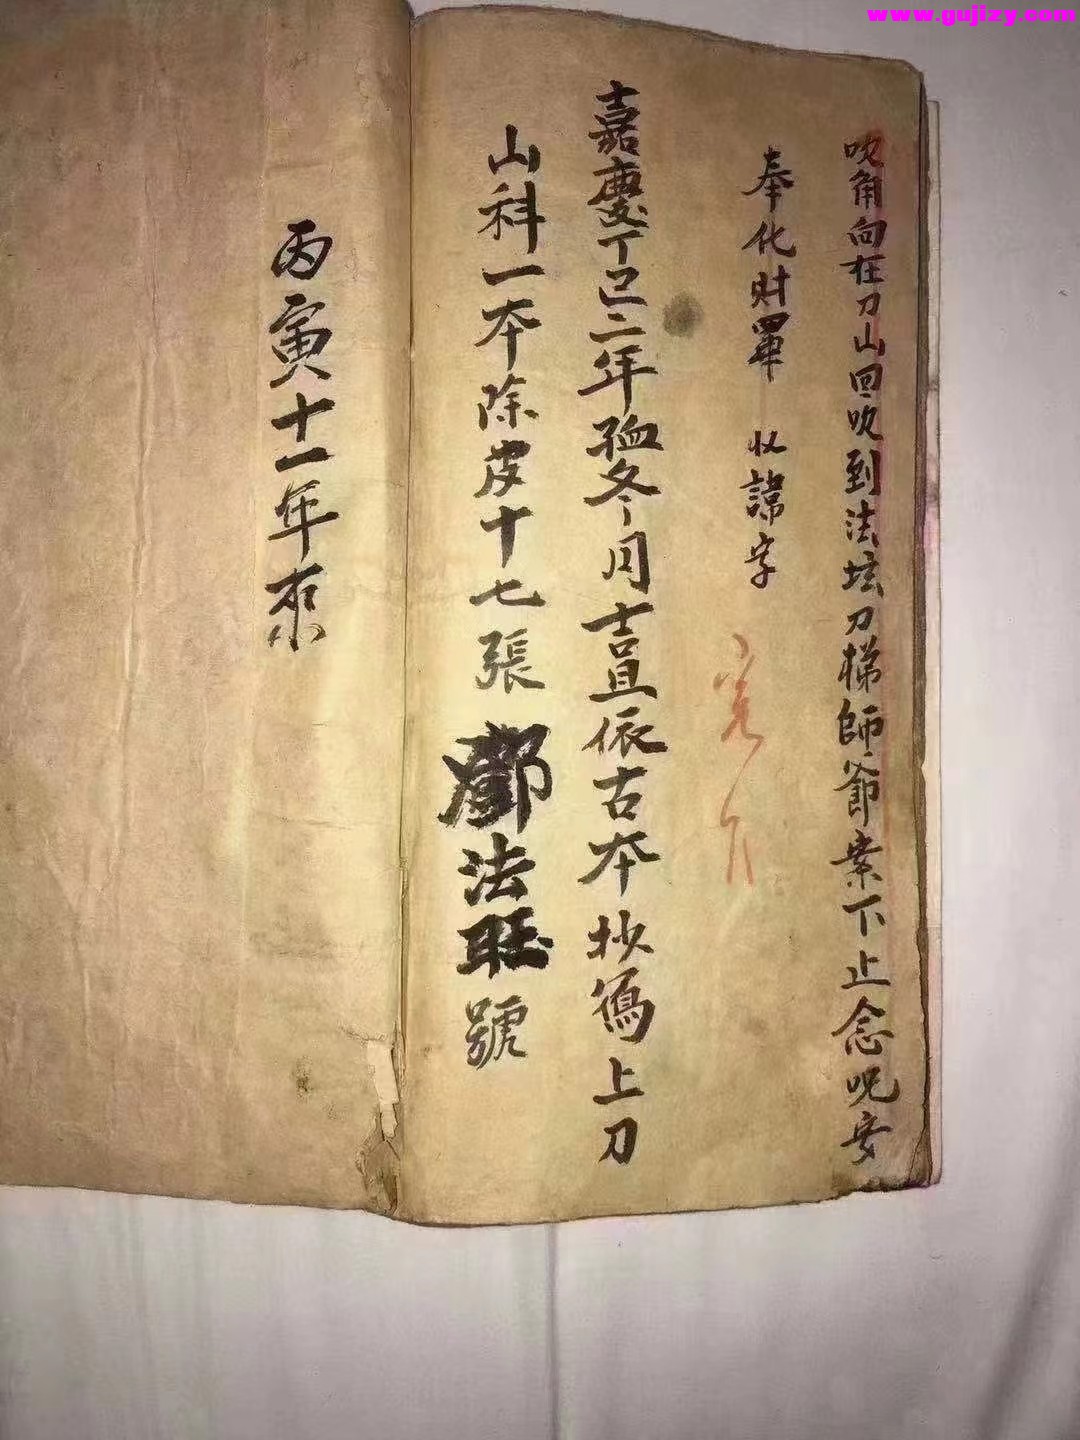 www.gujizy.com
吹角向在刀山回吹到法坛刀梯師爺案下止念呪安
奉化財畢 收諱字
嘉慶丁巳二年孟冬月吉旦依古本抄寫上刀
山科一本除皮十七張 鄧法旺號
丙寅十一年